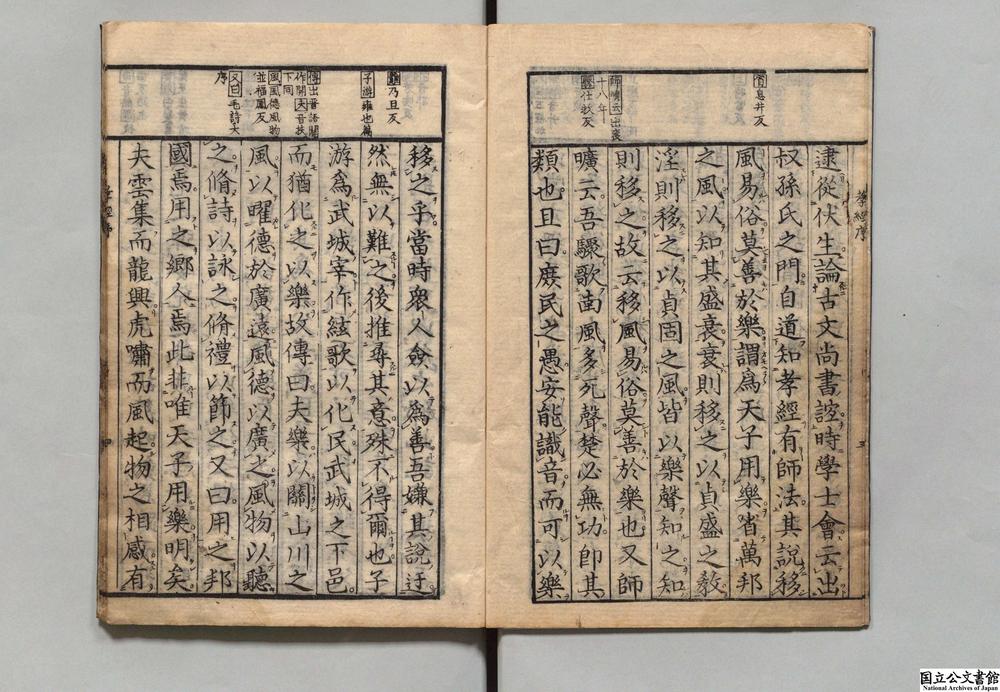 省息井反
師曠云出襄
十八年
仕救反
逮從伏生論古文尚書誼時學士會云出
叔孫氏之門自道知孝經有師法其說移
風易俗莫善於樂謂爲天子用樂省萬邦
之風以知其盛衰衰則移之以貞盛之敎
淫則移之以貞固之風皆以樂聲知之知
則移之故云移風易俗莫善於樂也又師
曠云吾驟歌南風多死聲楚必無功卽其
類也且曰庶民之愚安能識音而可以樂
孝經序
三
難乃旦反
子游雍也篇
傳出晉語關
作開天音扶
下同
風風德風物
並福鳳反
又曰毛詩大
序
移之乎當時衆人僉以爲善吾嫌其說迂
然無以難之後推尋其意殊不得爾也子
游爲武城宰作絃歌以化民武城之下邑
而猶化之以樂故傳曰夫樂以關山川之
風以曜德於廣遠風德以廣之風物以聽
之脩詩以詠之脩禮以節之又曰用之邦
國焉用之鄉人焉此非唯天子用樂明矣
夫雲集而龍興虎嘯而風起物之相感有
孝經序
四
国立公文書館
National Archives of Japan